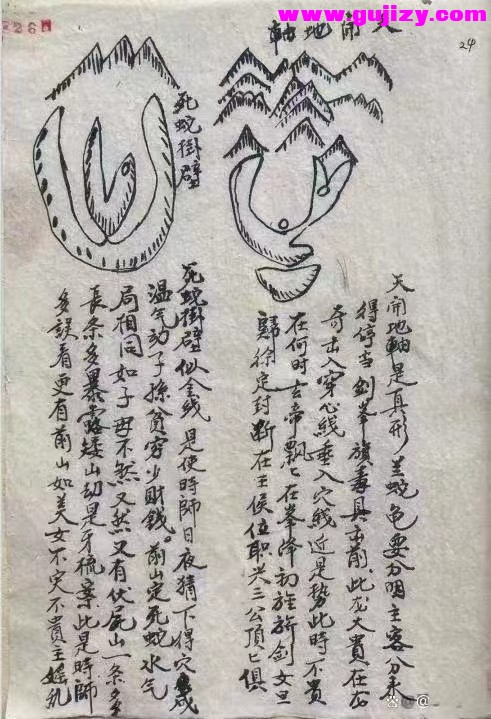 www.gujizy.com
24
天開地軸
死蛇掛壁
天開地軸是真形色要分明主客分
得停当剑峯旗前此龙大貴在
入穿心线垂入穴线近是势此時不貴
在何时古帝飘匕在峯初旌旂剑文旦
歸徐定封断在王侯位职兴三公頂匕俱
死蛇掛壁似金线是使時師日夜猜下得穴成
温气动子孫貧穷少財钱前山定死蛇水气
局相同如子母不然又然又有伏屍山一条多
長条多暴露矮山却是牙梳案此是時師
多誤看更有前山如美女不定不貴主婬乱